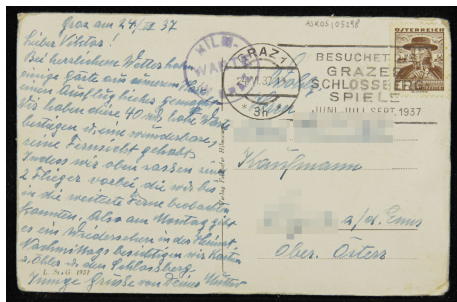 ASKÖS, 05298
Graz am 24./VI 37
Lieber Viktor!
Bei herrlichem Wetter haben
einige Gäste aus unserem
einen Ausflug hieher gemacht
Wir haben diese 40 m hohe Warte
bestiegen u. eine wunderbare,
reine Fernsicht gehabt.
Indess wir oben sassen
2 Flieger vorbei, die wir bis
in die weitere Ferne beobachten
konnten. Also am Montag gibt
es ein Wiedersehen in der Heimat
Nachmittags besichtigen wir
u. den Schlossberg.
Innige Grüsse von Deiner Mutter
L. St. G. 1937
HILM-
WARTE
GRAZ 1
VI. 37
* 3h
BESUCHET
GRAZER
SCHLOSSBERG
SPIELE
JUNI, JULI, SEPT. 1937
ÖSTERREICH
Herrn
Kaufmann
a/d. Enns
Ober. Österr.